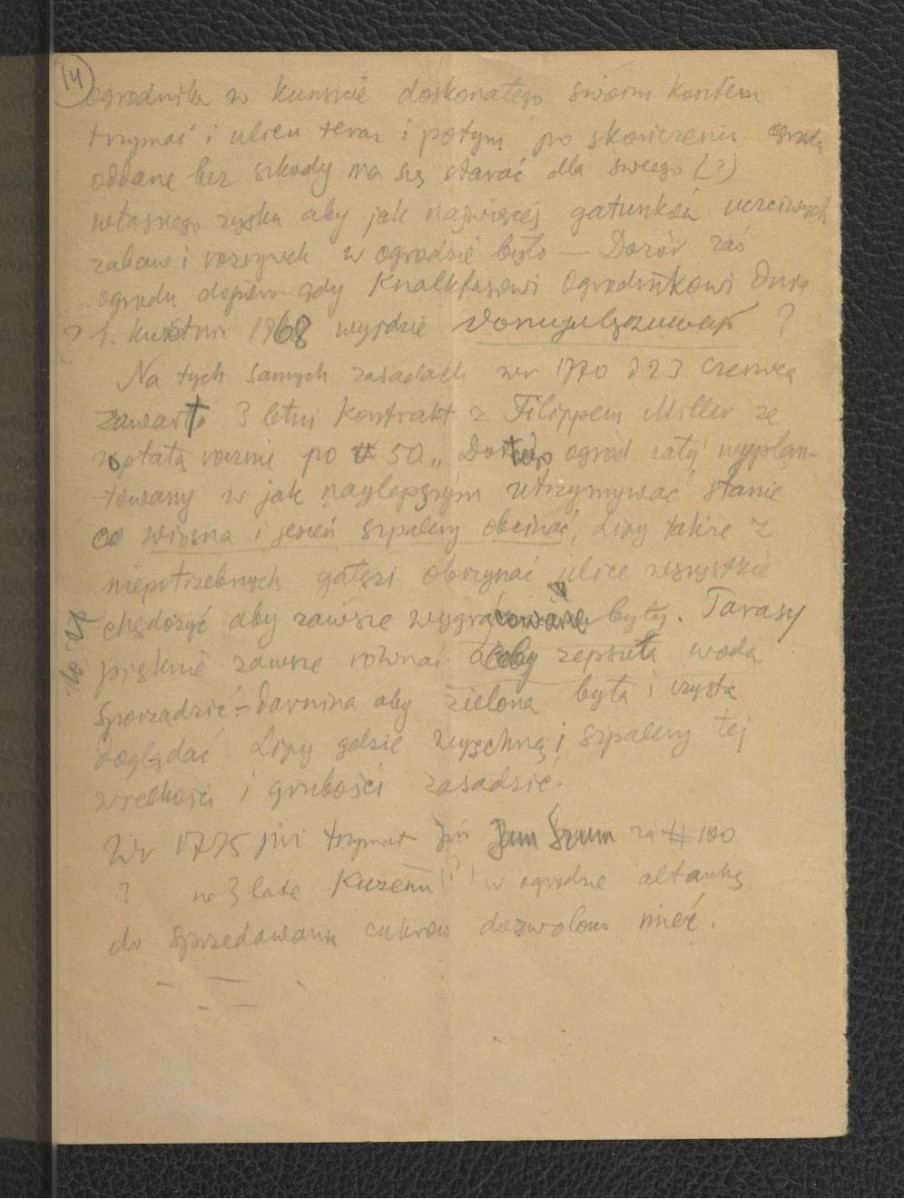 14
ogrodnika w kunszcie doskonałego swoim kosztem
trzymać i ulicu teraz i potym po skończeniu ogrodu
oddane bez szkody ma się starać dla swego (?)
własnego zysku aby jak najwięcej gatunków uczciwych
zabaw i rozrywek w ogrodzie było — Dozór zaś
ogrodu dopiero gdy Knalkfasowi Ogrodnikowi Dnia
? 1. kwietnia 1768 wyjdzie ?
Na tych samych zasadach w r 1770 d 23 czerwca
zawarto 3 letni kontrakt z Filippem Miller za
opłatą rocznie po # 50 „ ogrod cały wyplan-
towany w jak naylepszym utrzymywać stanie
co wiosna i jesień szpalery obcinać, Lipy także z
niepotrzebnych gałęzi obrzynać ulice wszystkie
chędożyć aby zawsze wygracowane były. Tarasy
pięknie zawsze równać zepsuła woda
sporządzić – darnina aby zielona była i czysta
doglądać Lipy gdzie wyschną i szpalery tej
wielkości i grubości zasadzić.
W r 1775 trzymał Jan Szum za # 100
? na 3 lata (?) w ogrodzie altankę
do sprzedawania cukrów dozwolono mieć.